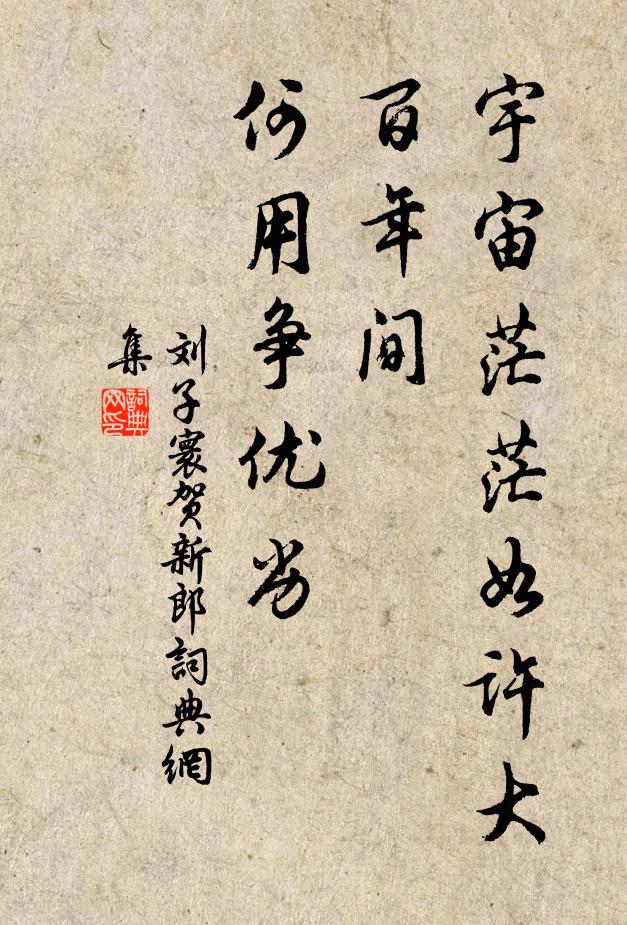 宇宙茫茫如许大
百年间
何用争优劣
刘子寰贺新郎詞典網
集
詞典
网印